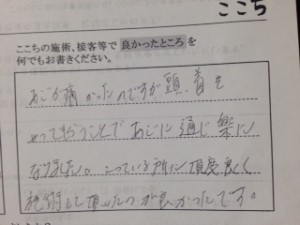 ここち
ここちの施術、接客等で良かったところを
何でもお書きください。
あごが痛かったのですが頭、首を
やってもらうことであごに通じ楽に
なりました。こっている所に丁度良く
して頂いたのが良かったです。